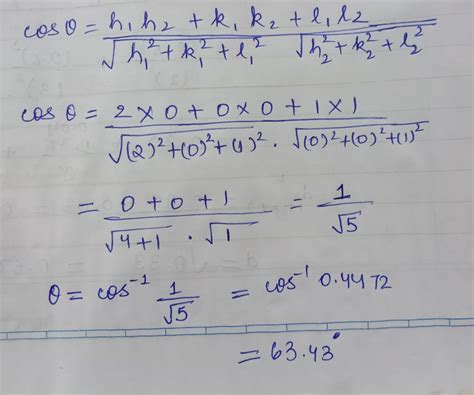 cosθ = h₁h₂ + k₁k₂ + l₁l₂ / √h₁²+k₁²+l₁² √h₂²+k₂²+l₂²
cosθ = 2×0+0×0+1×1 / √(2)²+(0)²+(1)² · √(0)²+(0)²+(1)²
= 0+0+1 / √4+1 · √1 = 1/√5
θ = cos⁻¹ 1/√5 = cos⁻¹ 0.4472
= 63.43°